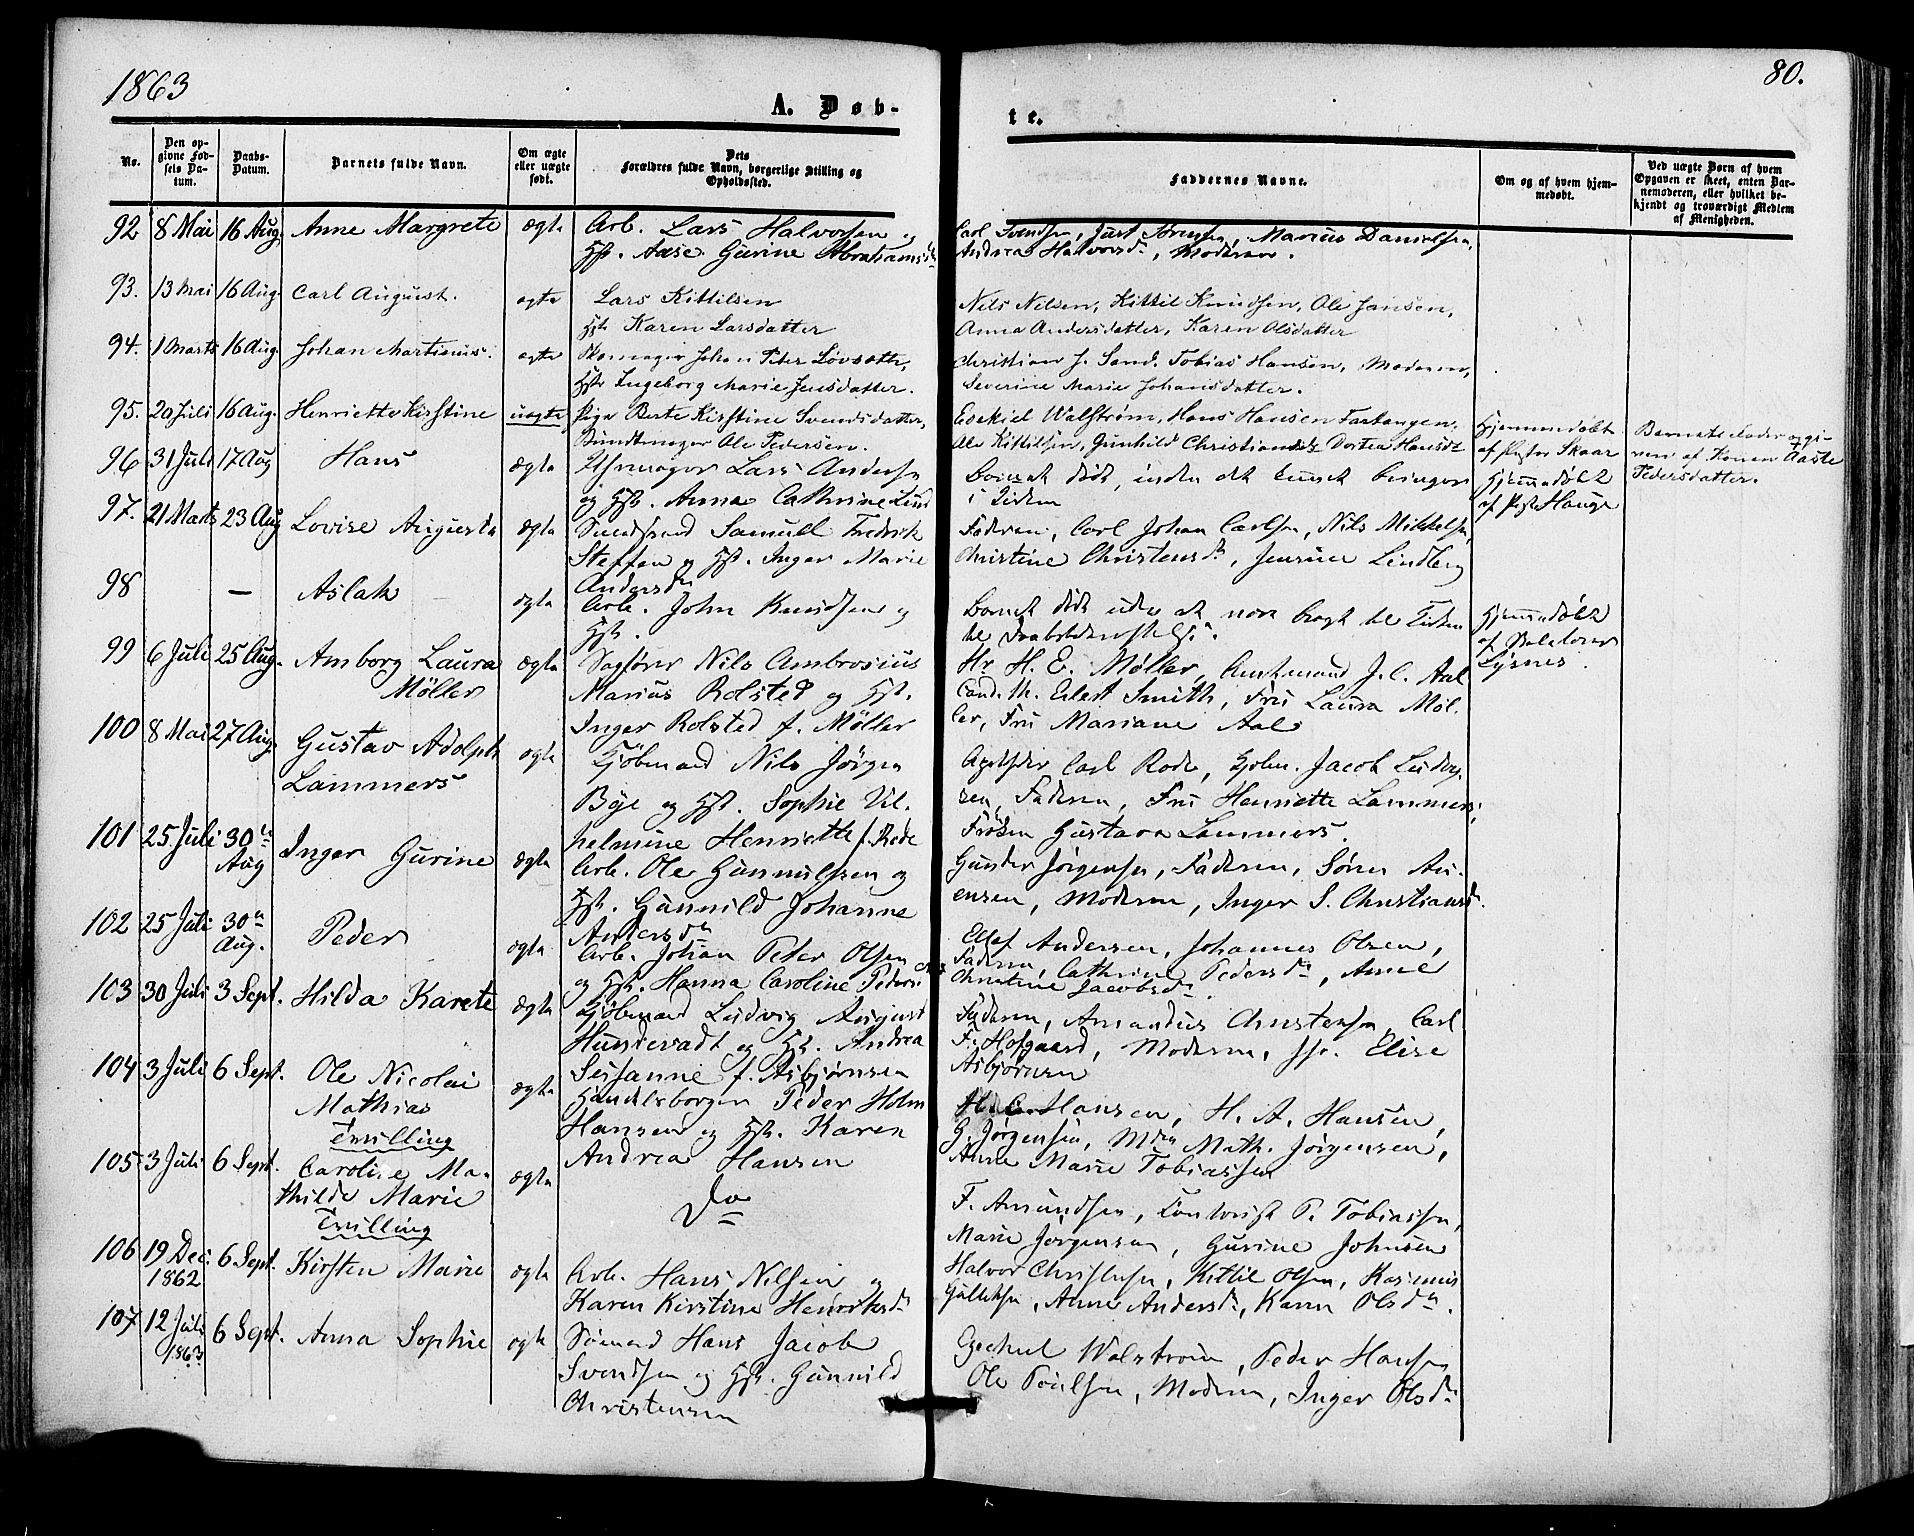 1863
80.
A. Døb-
te.
No.
Den op-
givne Fød-
sels Da-
tum.
Daabs-
Datum.
Barnets fulde Navn.
Om ægte
eller uægte
født.
Dets
Forældres fulde Navn, borgerlige Stilling og
Opholdssted.
Faddernes Navne.
Om og af hvem hjem-
medøbt.
Ved uægte Børn af hvem
Opgaven er skeet, enten Bar-
nemoderen, eller hvilket be-
kjendt og troværdigt Medlem
af Menigheden.
92 8 Mai 16 Aug. Anne Margrete ægte Arb. Lars Halvorsen og
Hst. Aase Gurine Abrahamsdr
Carl Svendsen, Just Sørensen, Marius Danielsen,
Andrea Halvorsdr, Moderen.
93. 13 Mai 16 Aug. Carl August. ægte Lars Kittilsen
Hst Karen Larsdatter
Nils Nilsen, Kittil Knudsen, Ole Jansen,
Anna Andersdatter, Karen Olsdatter
94. 1 Marts 16 Aug. Johan Martinius. ægte Skomager Johan Peter Løvsæth,
Hst Ingeborg Marie Jensdatter.
Christian J. Sand. Tobias Hansen, Moderen,
Severine Marie Johansdatter.
95. 20 Juli 16 Aug. Henriette Kirstine uægte Pige Berte Kirstine Svendsdatter,
Bundtmager Ole Pedersen.
Ezekiel Walstrøm, Hans Hansen Tartangen,
Ole Kittilsen, Gunhild Christiansdr Dortea Hansdr
Hjemmedøbt
af Pastor Skaar
Barnets Fader opgi-
ven af Konen Aaste
Pedersdatter.
96 31 Juli 17 Aug Hans ægte Uhrmager Lars Andersen
og Hst. Anna Cathrine Lund
Barnet død, inden det kunde bringes
i Kirken
Hjemmedøbt
af Past Hauge
97. 21 Marts 23 Aug Lovise Augusta ægte Samuell Fredrik
Steffen og Hst. Inger Marie
Andersdr
Faderen, Carl Johan Carlsen, Nils Mikkelsen,
Christine Christensdr, Jensine Lindberg
98 — Aslak ægte Arb. John Knudsen og
Hst.
Barnet død uden at være bragt til Kirken
til Daabsbekræftelse.
Hjemmedøbt
af
Lysnes.
99 6 Juli 25 Aug. Amborg Laura
Møller
ægte Sagfører Nils Ambrosius
Marius Rolsted og Hst.
Inger Rolsted f. Møller
Hr. H. E. Møller, Amtmand J. C. Aal
Cand. th. Eilert Smith, Fru Laura Møl-
ler, Fru Mariane Aal
100 8 Mai 27 Aug. Gustav Adolph
Lammers
ægte Kjøbmand Nils Jørgen
Bøye og Hst. Sophie Vil-
helmine Henriette f. Rode
Apotheker Carl Rode, Kjøbm. Jacob Luder-
sen, Faderen, Fru Henriette Lammers,
Frøken Gustava Lammers.
101 25 Juli 30te
Aug
Inger Gurine ægte Arb. Ole Gunnulsen og
Hst. Gunnild Johanne
Andersdr
Gunder Jørgensen, Faderen, Søren Au-
ensen, Moderen, Inger S. Christiansdr.
102 25 Juli 30te
Aug.
Peder ægte Arb. Johan Peter Olsen
og Hst. Hanna Caroline Pedersdr
Ellef Andersen, Johannes Olsen,
Faderen, Cathrine Pedersdr, Anne
Christine Jacobsdr.
103 30 Juli 3 Sept. Hilda Karete ægte Kjøbmand Ludvig August
Hundevadt og Hst. Andrea
Susanne f. Asbjørnsen
Faderen, Amandus Christensen, Carl
F. Hofgaard, Moderen, Elise
Asbjørnsen
104 3 Juli 6 Sept. Ole Nicolai
Mathias
Tvilling
ægte Handelsborger Peder Holm
Hansen og Hst. Karen
Andrea Hansen
Hansen, H. A. Hansen,
G. Jørgensen, Mdm Math. Jørgensen,
Anne Marie Tobiassen
105 3 Juli 6 Sept. Caroline Ma-
thilde Marie
Tvilling
ægte Do
F. Amundsen, Kontorist P. Tobiassen,
Marie Jørgensen, Gurine Johnsen
106 19 Dec.
1862
6 Sept. Kirsten Marie ægte Arb. Hans Nilsen og
Karen Kirstine Henriksdr
Halvor Christensen, Kittil Olsen, Rasmus
Gulliksen, Anne Andersdr, Karen Olsdr.
107 12 Juli
1863
6 Sept. Anna Sophie ægte Sømand Hans Jacob
Svendsen og Hst. Gunnild
Christensen
Ezechiel Walstrøm, Peder Hansen
Ole Poulsen, Moderen, Inger Olsdr